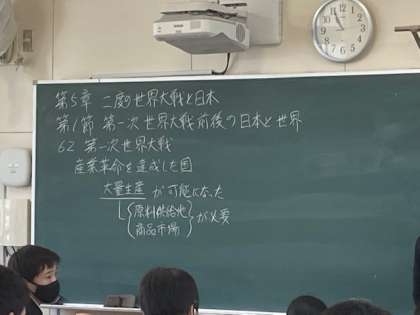 第5章 二度の世界大戦と日本
第1節 第一次世界大戦前後の日本と世界
62 第一次世界大戦
産業革命を達成した国
大量生産 が可能になった
原料供給地
商品市場
が必要